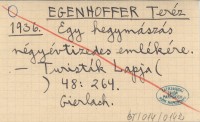 EGENHOFFER Teréz
1936. Egy hegymászás
négyértizedes emlékére.
– Turisták Lapja (
) 48: 264.
Gierlach.